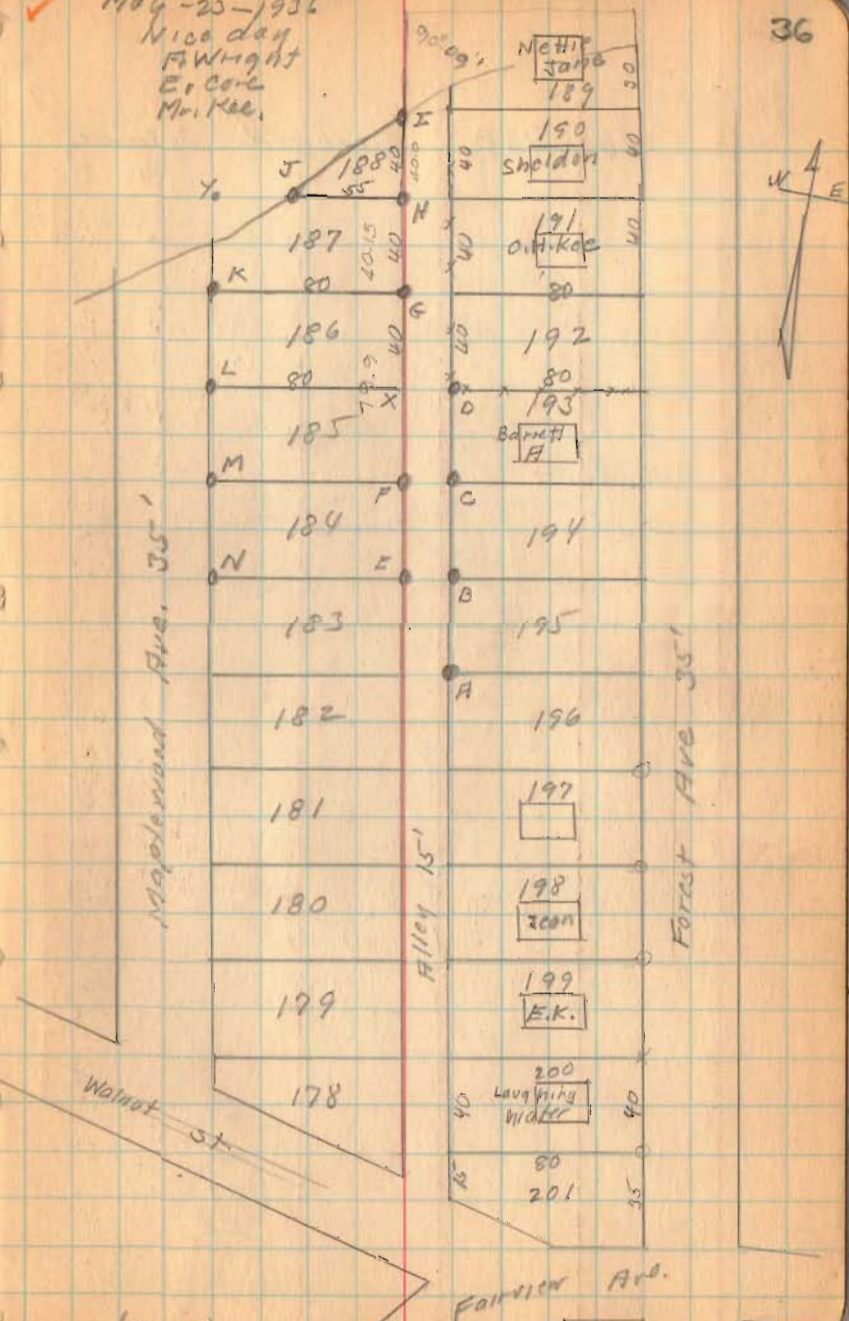 May-23-1936
Nice day
A Wright
E. Core
Mr. Kee.
36
90° 09'
Nettie
Jane
189
30
I
190
Sheldon
40
40
40
40.0
188
J
55
Y
H
191
O.H. Kee
40
40
187
40
40.15
K
80
G
80
186
40
40
192
L
80
79.9
X
D
80
193
185
Barrett
A
M
F
C
184
194
N
E
B
183
195
A
182
196
181
197
180
198
179
199
E.K.
178
200
Laughing
Water
40
40
80
15
201
35
N
E
Maplewood Ave. 35'
Alley 15'
Forest Ave 35'
Walnut
St
Fairview Ave.